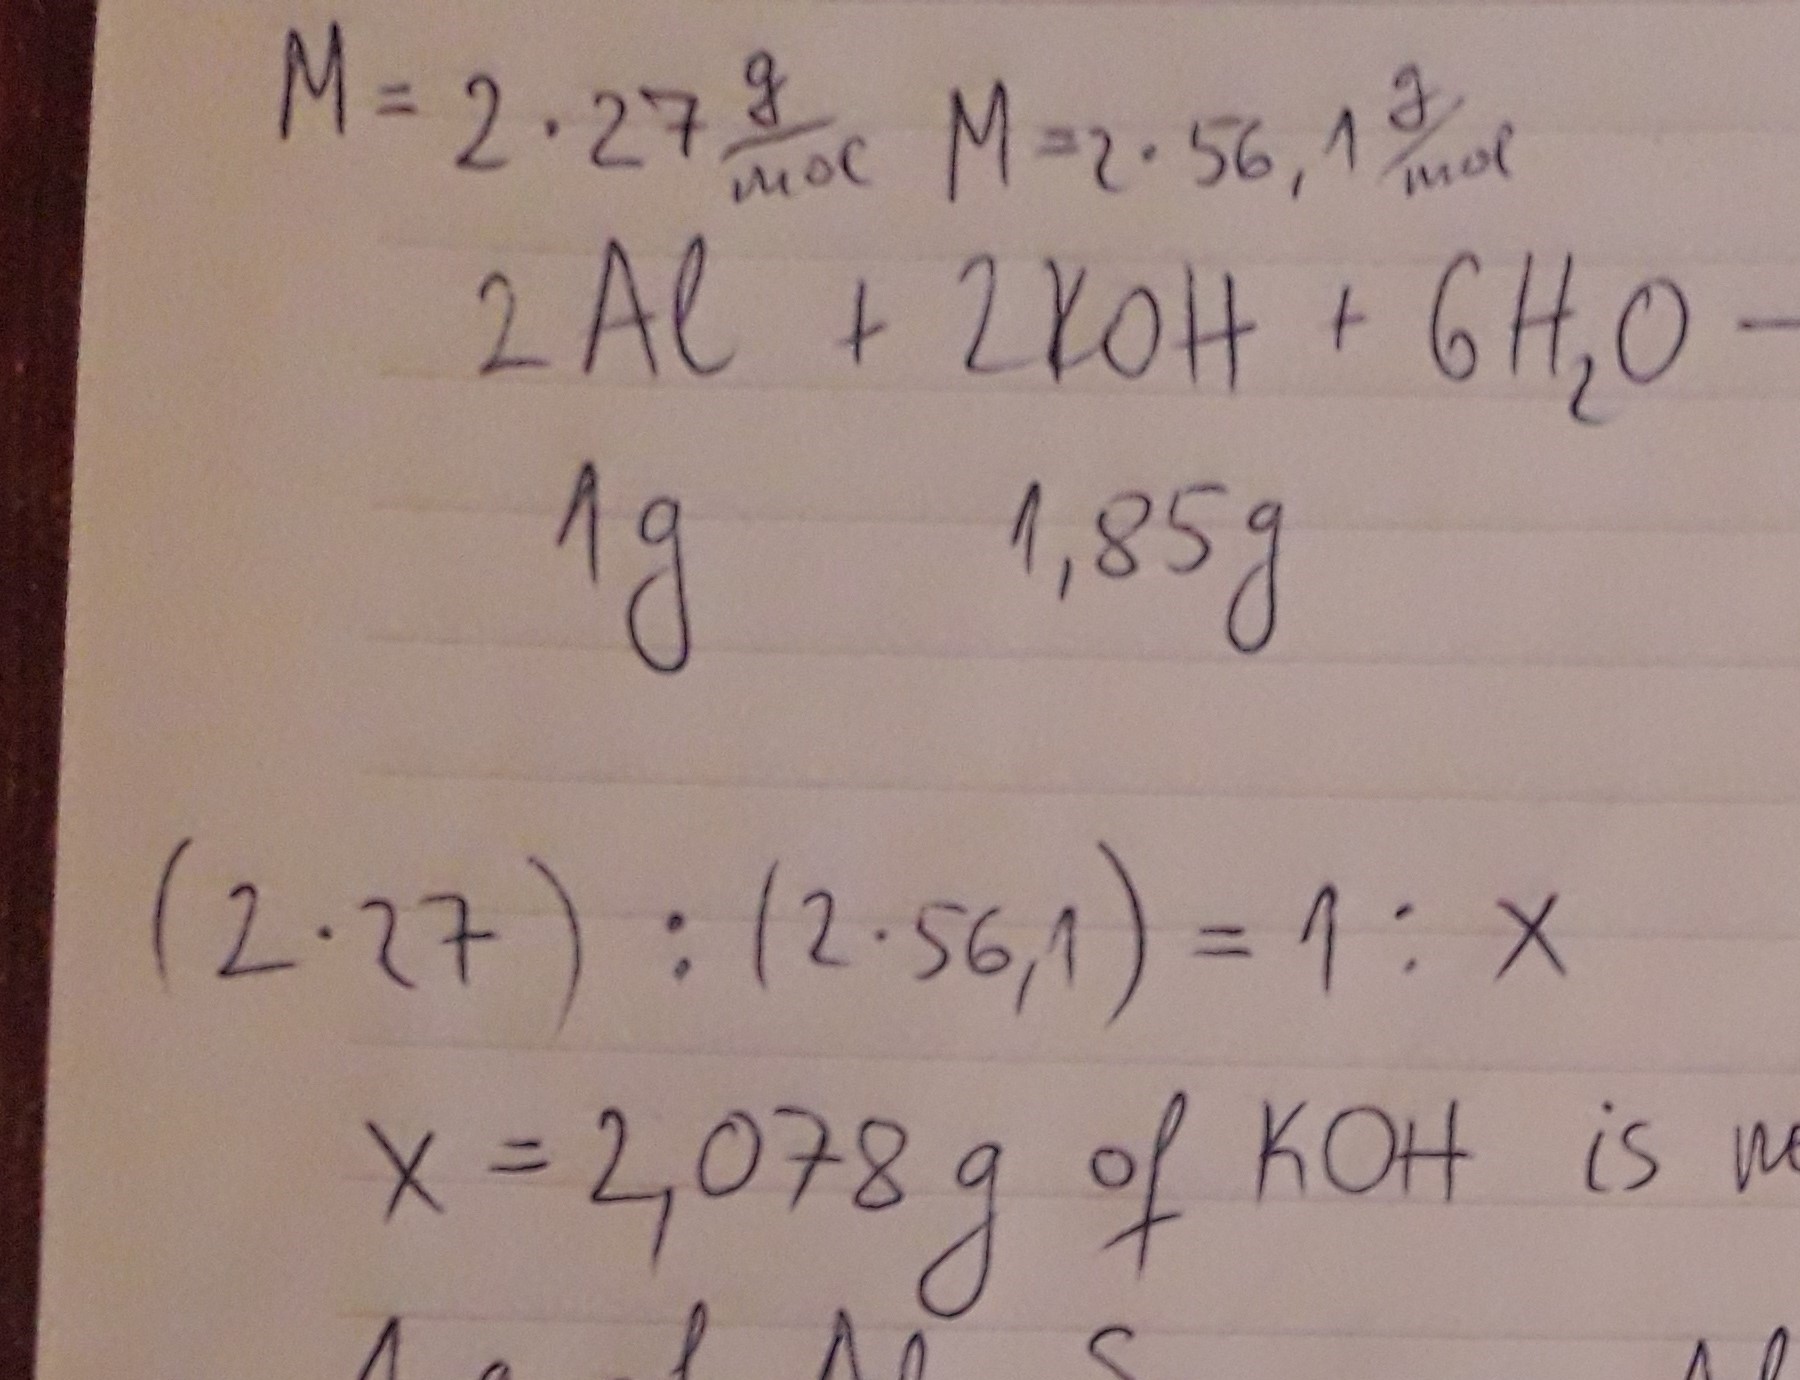 M = 2·27 g/mol M = 2·56,1 g/mol
2Al + 2KOH + 6H₂O –
1g 1,85g
(2·27) : (2·56,1) = 1 : x
x = 2,078g of KOH is